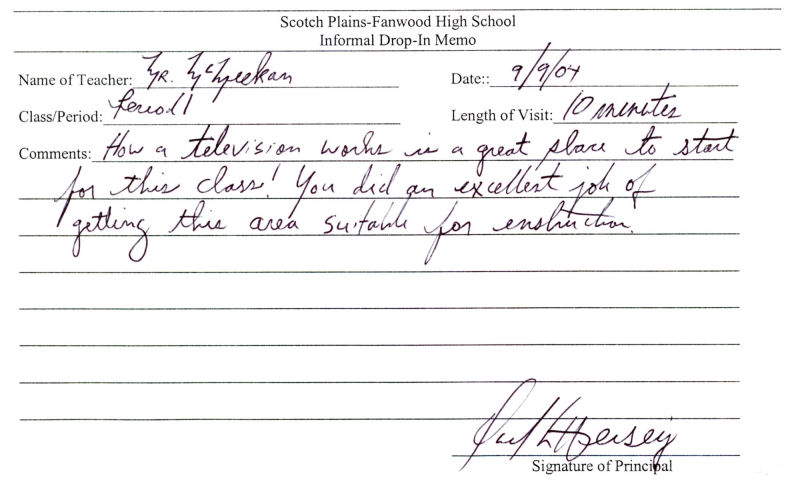 Scotch Plains-Fanwood High School
Informal Drop-In Memo
Name of Teacher: Mr. McMeekan Date:: 9/9/04
Class/Period: Period 1 Length of Visit: 10 minutes
Comments: How a television works is a great place to start
for this class! You did an excellent job of
getting this area suitable for instruction.
Signature of Principal